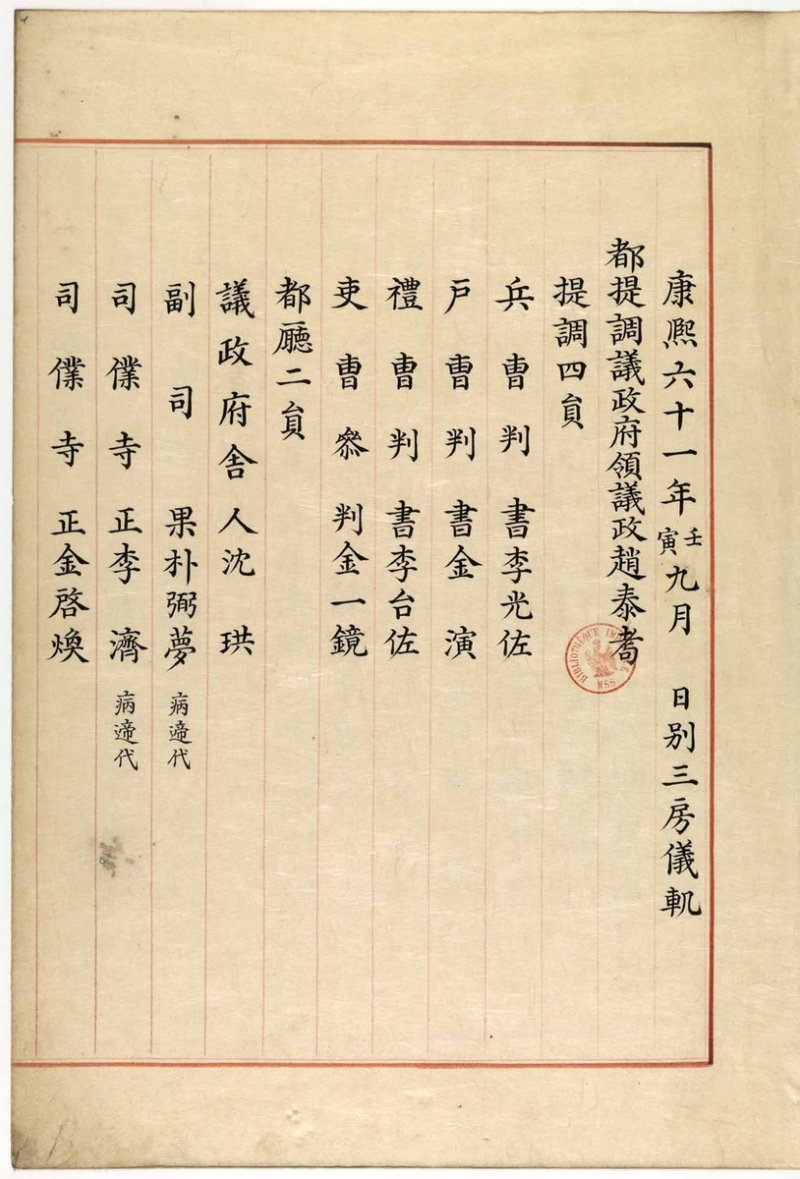 康熙六十一年壬寅九月 日別三房儀軌
都提調議政府領議政趙泰耉
提調四員
兵曹判書李光佐
戶曹判書金演
禮曹判書李台佐
吏曹叅判金一鏡
都廳二員
議政府舍人沈珙
副司果朴弼夢病遞代
司僕寺正李濟病遞代
司僕寺正金啓煥